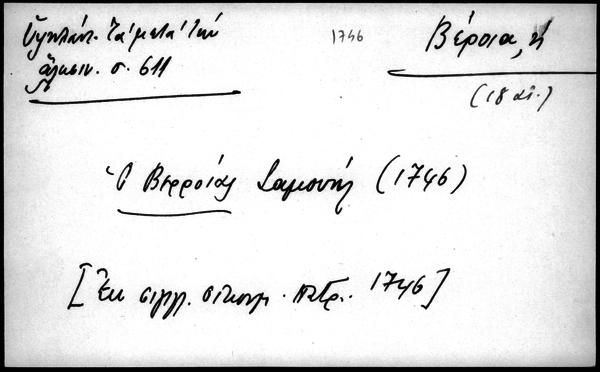 Ὑψηλάντ. Τὰ μετὰ τὴν
ἅλωσιν. σ. 611
1746
Βέροια, ἡ
(18 αἰ.)
Ὁ Βερροίας Σαμουήλ (1746)
[Ἐκ σιγιλ. οἰκουμ. πατρ. 1746]